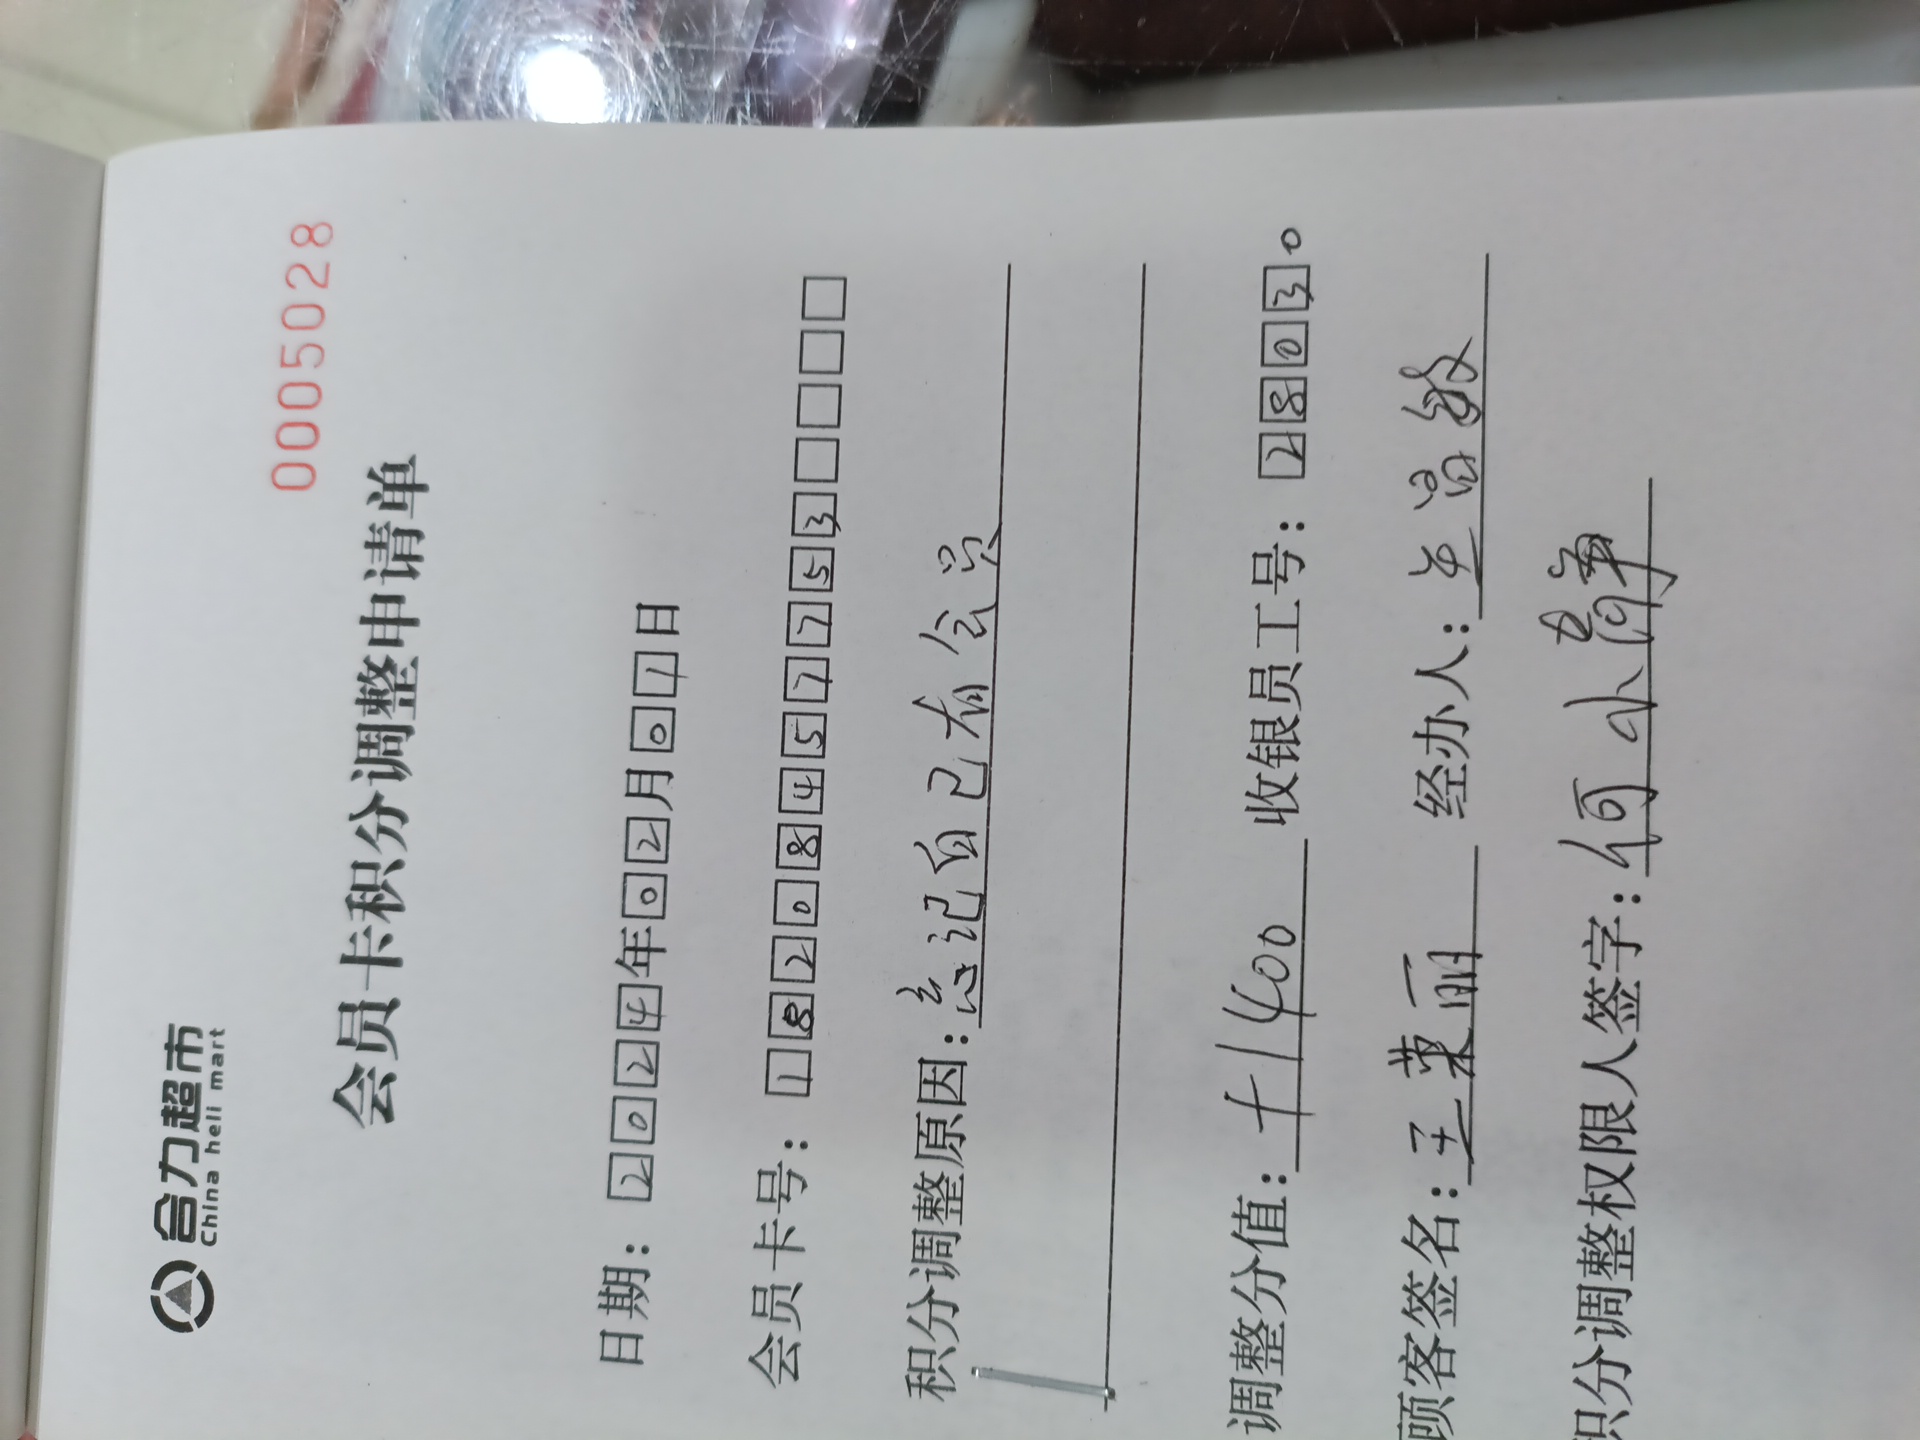 合力超市
China heli mart
0005028
会员卡积分调整申请单
日期：2024年02月01日
会员卡号：18208457753
积分调整原因：忘记自己有会员
调整分值：+1400 收银员工号：28030
顾客签名：王莱丽 经办人：
积分调整权限人签字：何小